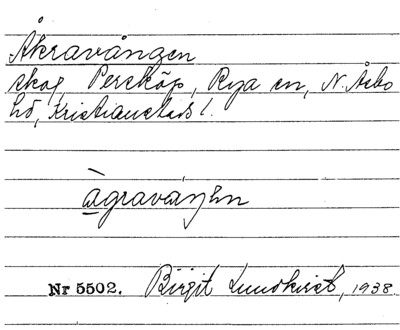 Åkravången
skog, Perstöp, Rya sn, N. Åsbo
hd, Kristianstads l.
àgraváŋən
Nr 5502. Birgit Lundkvist, 1938.